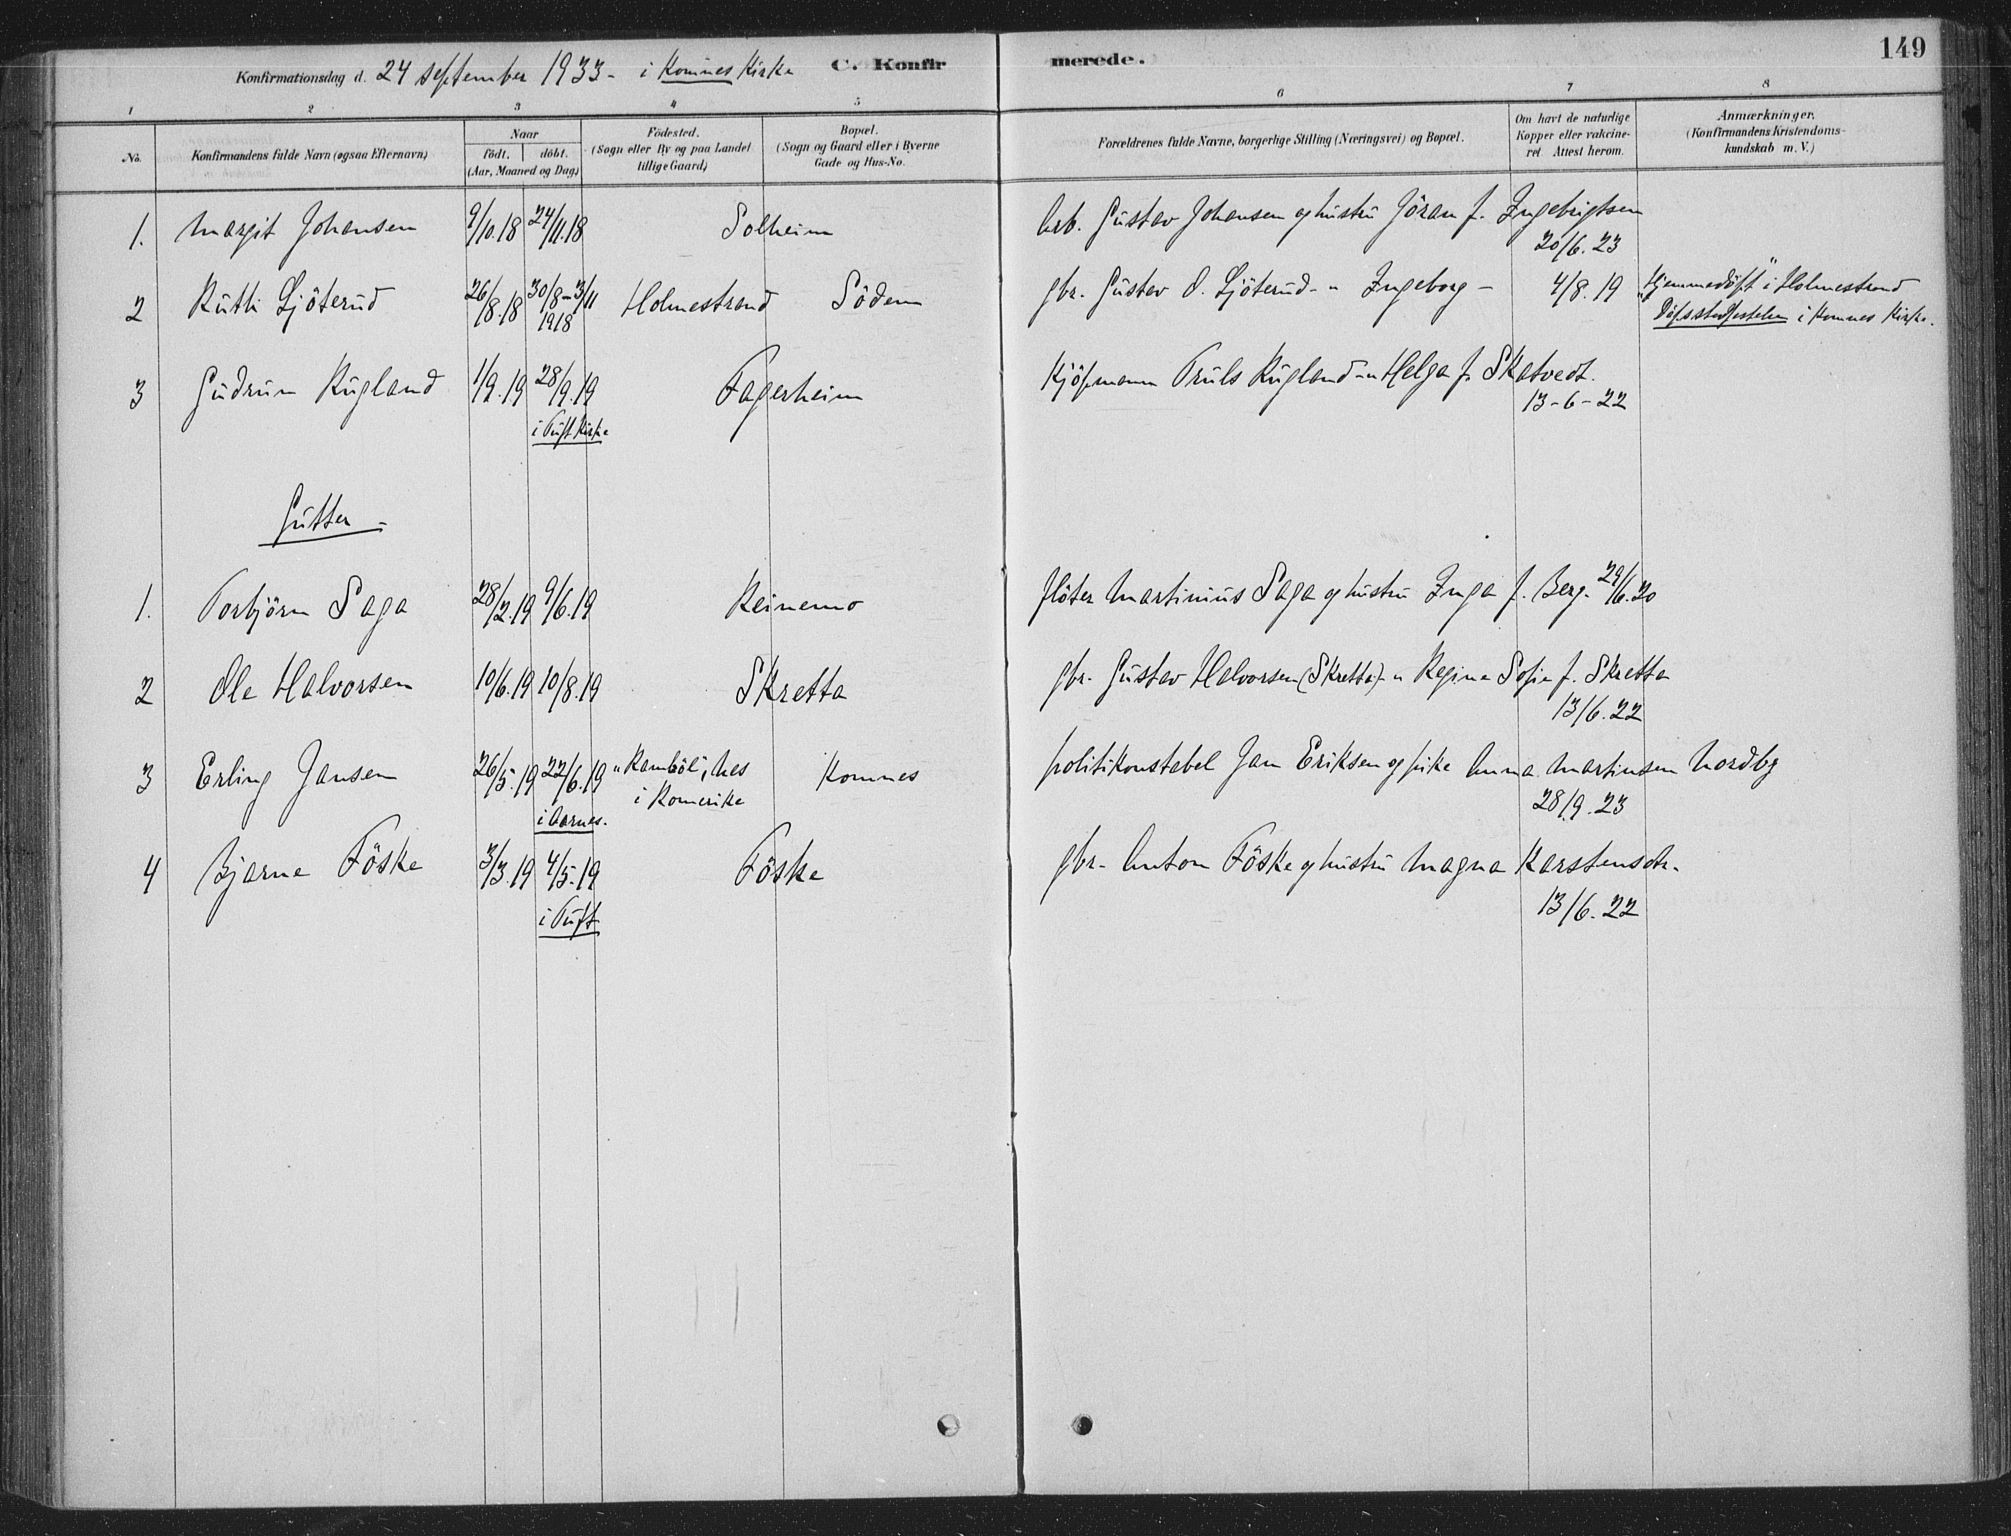 149
Konfirmationsdag d. 24 september 1933 - i Komnes Kirke C. Konfirmerede.
1 2 3 4 5 6 7 8
No. Konfirmandens fulde Navn (ogsaa Efternavn) Naar födt. döbt. (Aar, Maaned og Dag) Födested. (Sogn eller By og paa Landet tillige Gaard) Bopæl. (Sogn og Gaard eller i Byerne Gade og Hus-No. Forældrenes fulde Navne, borgerlige Stilling (Næringsvei) og Bopæl. Om havt de naturlige Kopper eller vakcineret. Attest herom. Anmærkninger. (Konfirmandens Kristendomskundskab m. V.)
1. Margit Johansen 9/10.18 24/11.18 Solheim Arb. Gustav Johansen og hustru Jöran f. Ingebrigtsen
20/6.23
2 Ruth Ljöterud 26/8.18 30/8-3/11 1918 Holmestrand Södem gbr. Gustav O. Ljöterud - " Ingeborg - 4/8.19 "Hjemmedöpt" i Holmestrand
Dåpsstadfestelse i Komnes Kirke.
3 Gudrun Rugland 1/9.19 28/9.19 Fagerheim Kjöpmann Truls Rugland - " Helga f. Skatvedt.
i Tuft Kirke 13-6-22
Gutter -
1. Torbjörn Saga 28/2.19 9/6.19 Reinemo flöter Martinius Saga og hustru Inga f. Berg. 29/6.20
2 Ole Halvorsen 10/6.19 10/8.19 Skretta gbr. Gustav Halvorsen (Skretta) - " Regine Sofie f. Skretta
13/6.22
3 Erling Jansen 26/5.19 22/6.19 "Ramböl", Nes i Romerike Komnes politikonstabel Jan Eriksen og pike Anna Martinsen Nordby
i Aarnes. 28/9.23
4 Bjarne Föske 3/3.19 4/5.19 Föske gbr. Anton Föske og hustru Magna Karstensdtr.
i Tuft 13/6.22